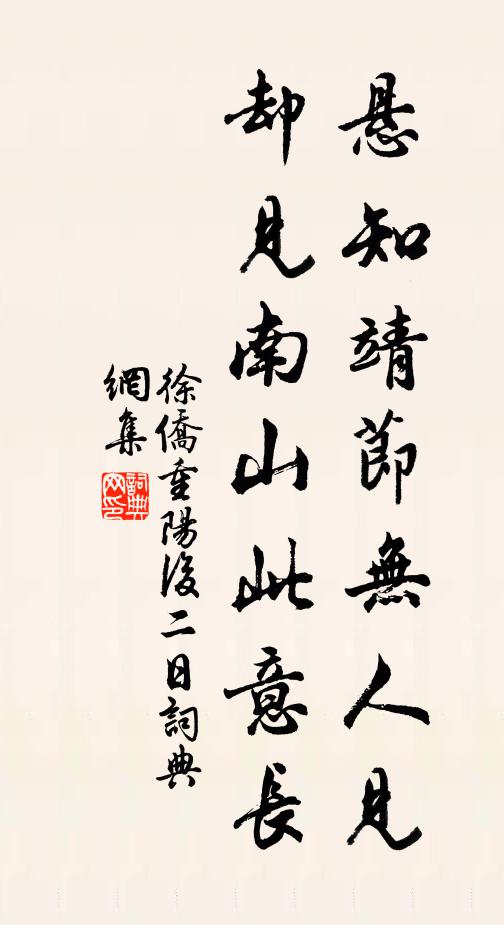 悬知靖節無人見
却見南山此意長
徐僑重陽後二日詞典
網集
詞典
网印